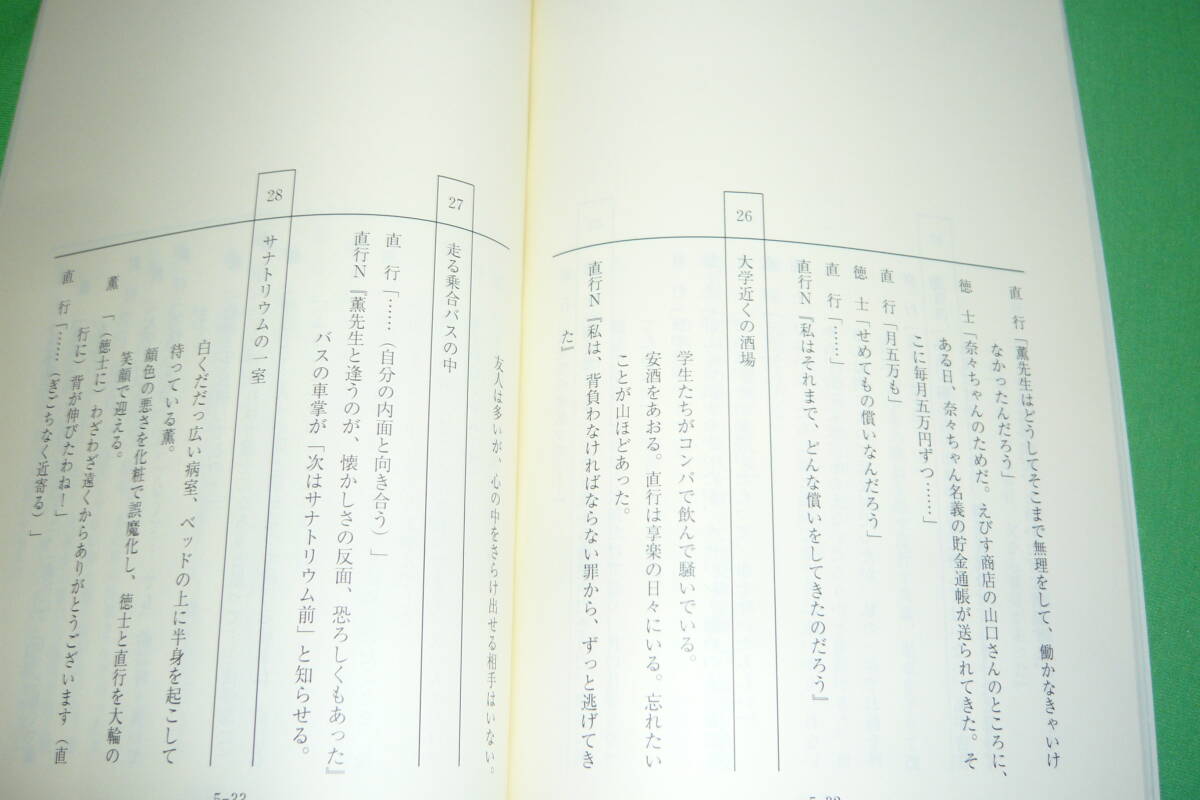 直　行「薫先生はどうしてそこまで無理をして、働かなきゃいけ
なかったんだろう」
徳　士「奈々ちゃんのためだ。えびす商店の山口さんのところに、
ある日、奈々ちゃん名義の貯金通帳が送られてきた。そ
こに毎月五万円ずつ……」
直　行「月五万も」
徳　士「せめてもの償いなんだろう」
直　行「……」
直行N『私はそれまで、どんな償いをしてきたのだろう』
26　大学近くの酒場
学生たちがコンパで飲んで騒いでいる。
安酒をあおる。直行は享楽の日々にいる。忘れたい
ことが山ほどあった。
直行N『私は、背負わなければならない罪から、ずっと逃げてき
た』
友人は多いが、心の中をさらけ出せる相手はいない。
27　走る乗合バスの中
直　行「……（自分の内面と向き合う）」
直行N『薫先生と逢うのが、懐かしさの反面、恐ろしくもあった』
バスの車掌が「次はサナトリウム前」と知らせる。
28　サナトリウムの一室
白くだだっ広い病室、ベッドの上に半身を起こして
待っている薫。
顔色の悪さを化粧で誤魔化し、徳士と直行を大輪の
笑顔で迎える。
薫　「（徳士に）わざわざ遠くからありがとうございます（直
行に）背が伸びたわね！」
直　行「……（ぎごちなく近寄る）」